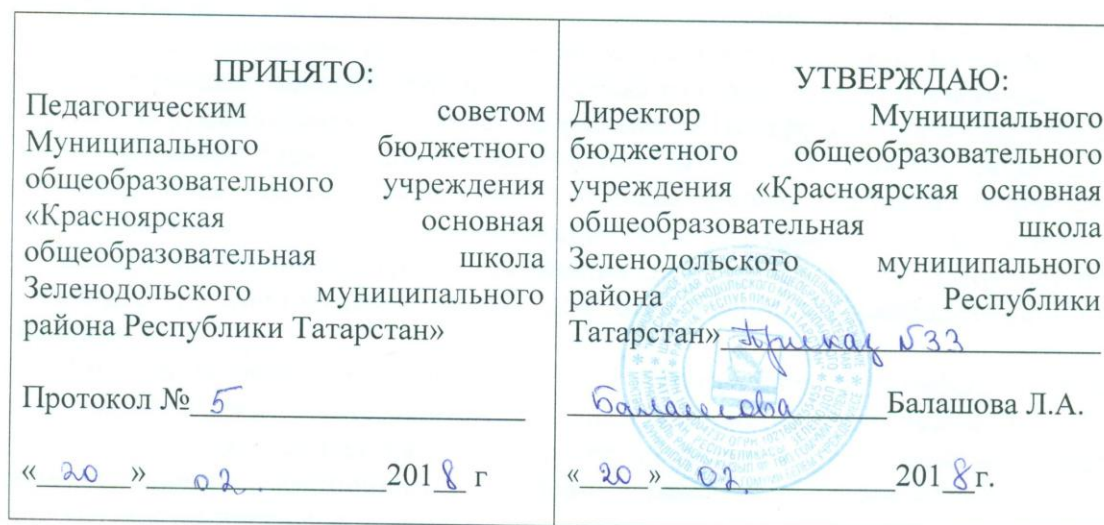 ПРИНЯТО:
Педагогическим советом
Муниципального бюджетного
общеобразовательного учреждения
«Красноярская основная
общеобразовательная школа
Зеленодольского муниципального
района Республики Татарстан»
Протокол № 5
« 20 » 02. 2018 г
УТВЕРЖДАЮ:
Директор Муниципального
бюджетного общеобразовательного
учреждения «Красноярская основная
общеобразовательная школа
Зеленодольского муниципального
района Республики
Татарстан» Приказ №33
Балашова Балашова Л.А.
« 20 » 02. 2018г.